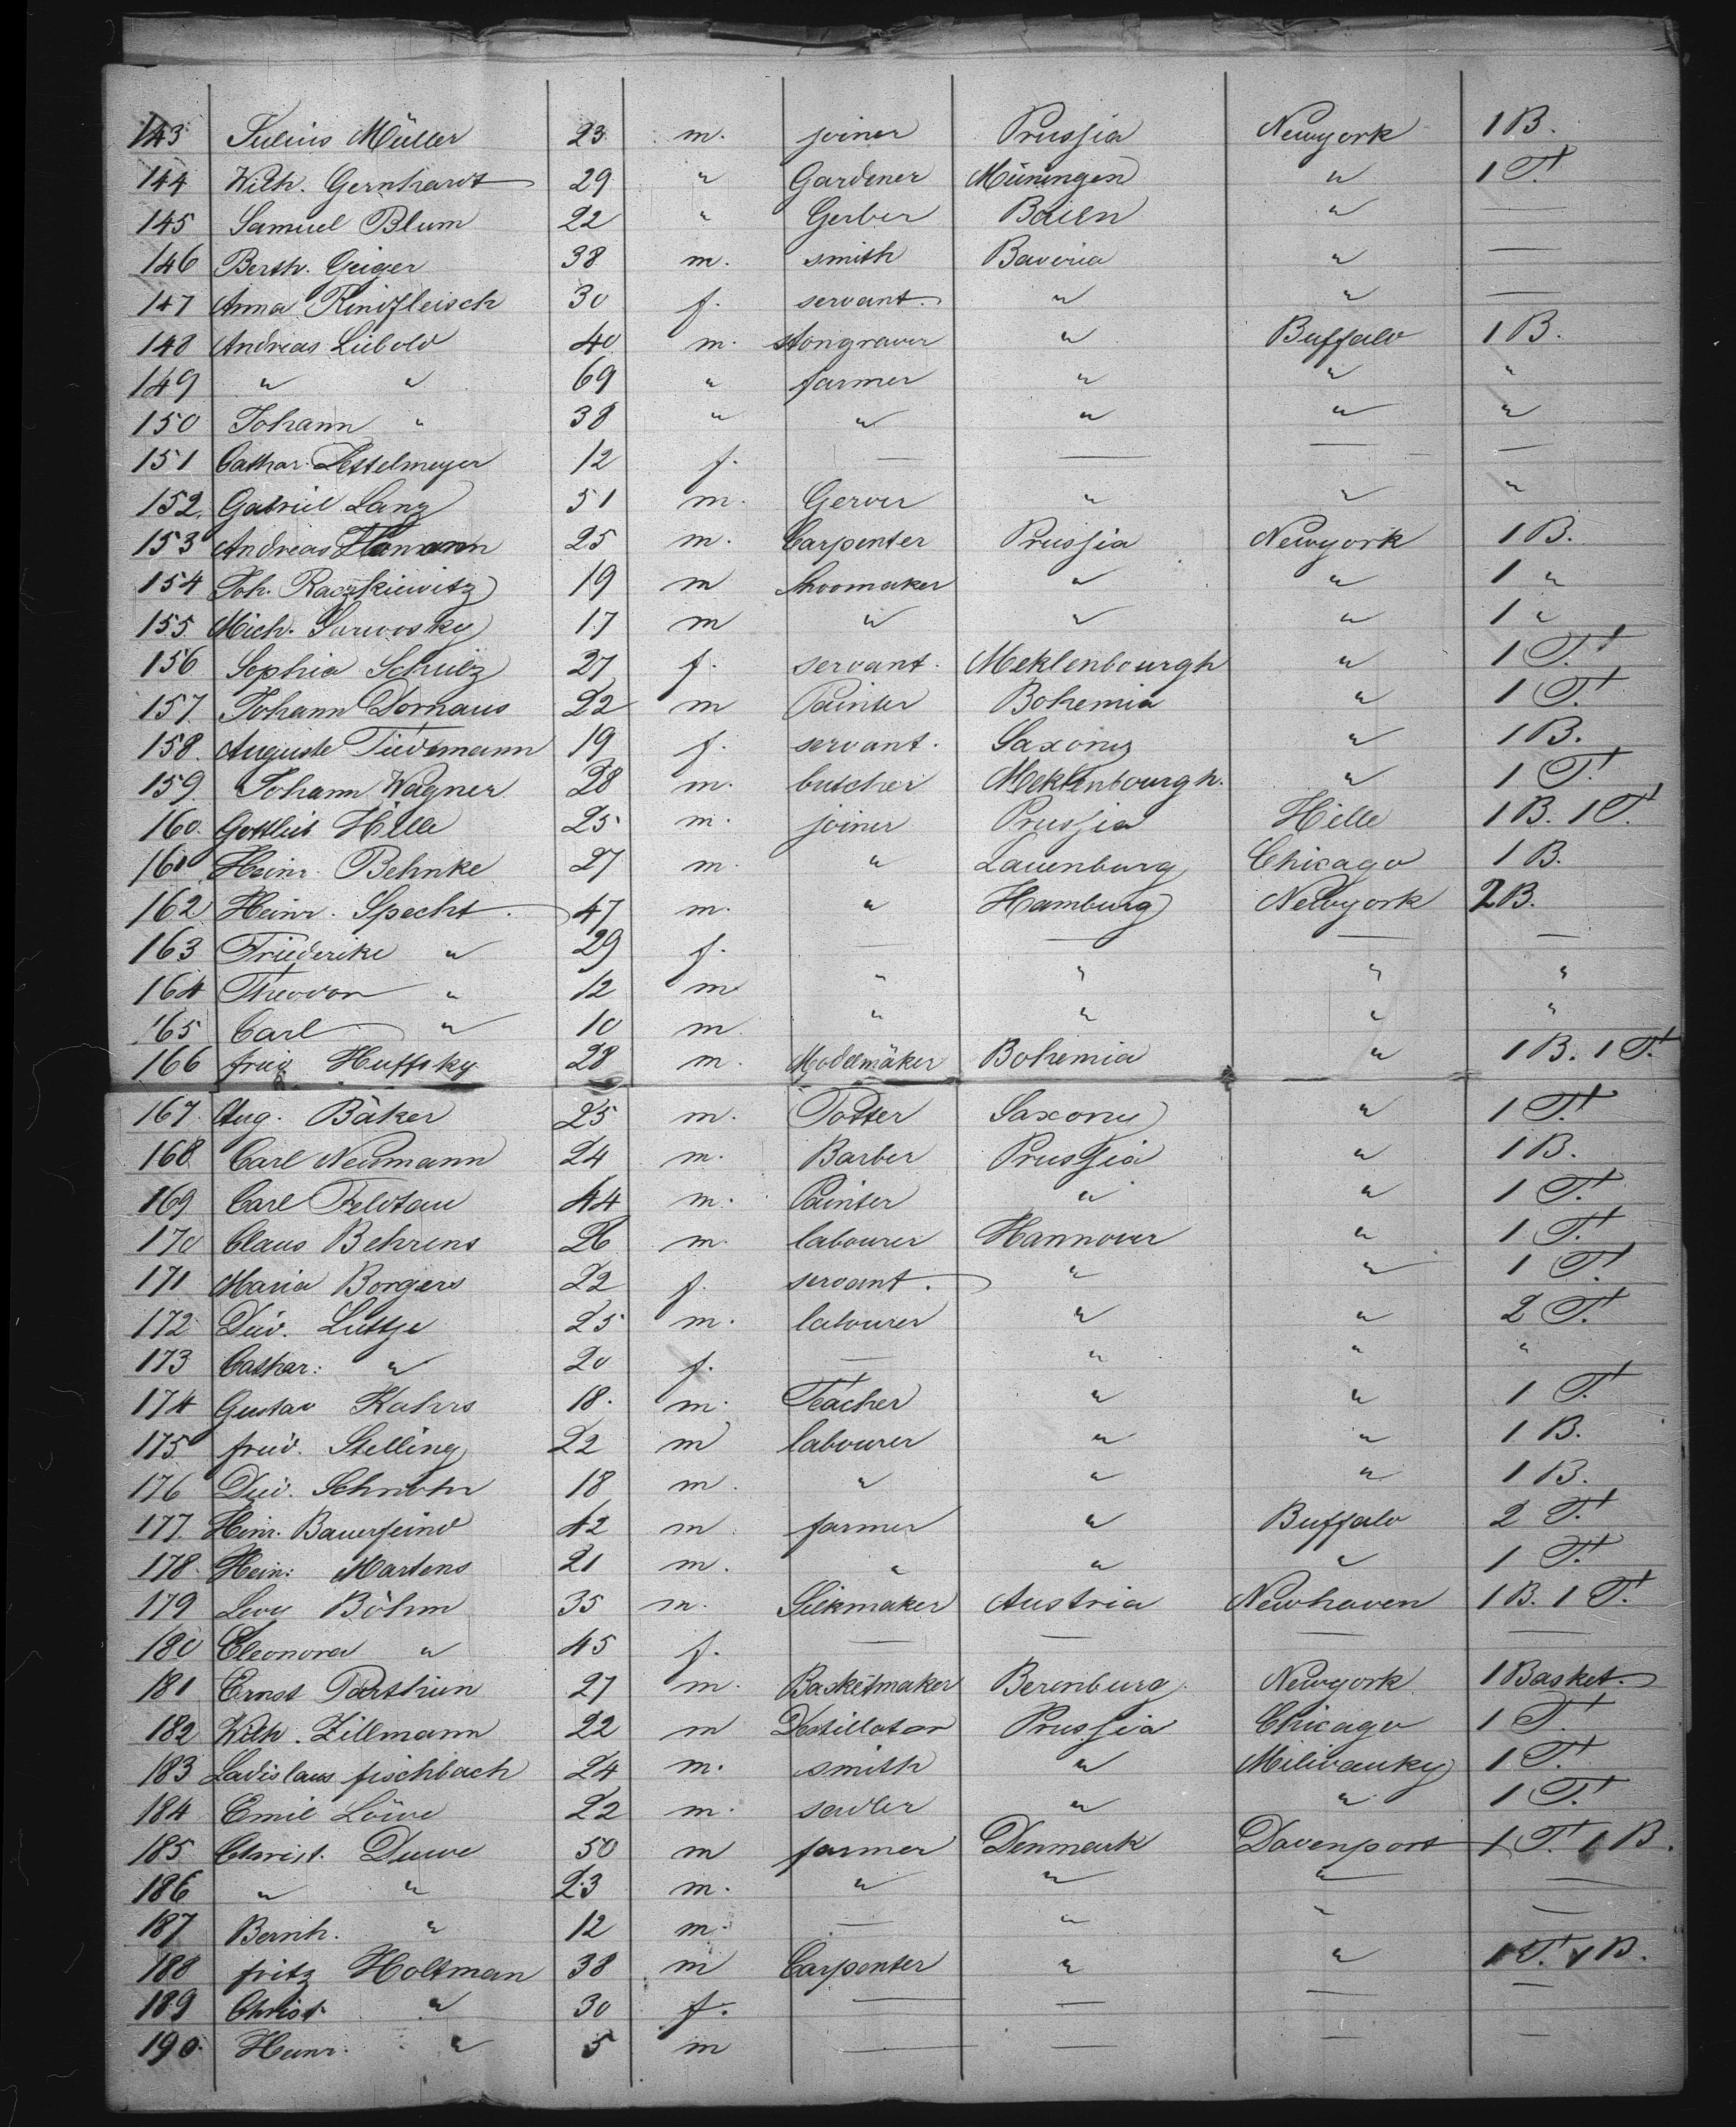 143 Julius Müller 23 m. joiner Prussia Newyork 1 B.
144 Wilh. Gernhardt 29 " Gardener Müningen " 1 T.
145 Samuel Blum 22 " Gerber Baien " —
146 Berth. Geiger 38 m. smith Baveria " —
147 Anna Rindfleisch 30 f. servant. " " —
148 Andreas Liebold 40 m. stongraver " Buffalo 1 B.
149 " " 69 " farmer " " "
150 Johann " 38 " " " " "
151 Cathar. 12 f. — — — —
152. Gabriel Lang 51 m. Gerver " " "
153 Andreas Hamann 25 m. Carpenter Prussia Newyork 1 B.
154 Joh. Raczkiewitz 19 m shoomaker " " 1 "
155. Mich. 17 m " " " 1 "
156 Sophia Schulz 27 f. servant. Meklenbourgh " 1 T.
157. Johann Dornaus 22 m Painter Bohemia " 1 T.
158. Auguste Tiedemann 19 f. servant. Saxony " 1 B.
159. Johann Wagner 28 m. butcher Meklenbourgh. " 1 T.
160. Gottlieb Hille 25 m. joiner Prussia Hille 1 B. 1 T.
161 Heinr. Behnke 27 m. " Lauenburg Chicago 1 B.
162 Heinr. Specht. 47 m. " Hamburg Newyork 2 B.
163 Friederike " 29 f. — — — —
164 Theodor " 12 m " " " "
165 Carl " 10 m. " " " "
166 fried. Huffsky 28 m. Modelmäker Bohemia " 1 B. 1 T.
167. Aug. Bäker 25 m. Potter Saxony " 1 T.
168 Carl Neumann 24 m. Barber Prussia " 1 B.
169 Carl Feldtau 44 m. Painter " " 1 T.
170 Claus Behrens 26 m. labourer Hannover " 1 T.
171 Maria Borgers 22 f. servant. " " 1 T.
172 Died. Lüttje 25 m. labourer " " 2 T.
173 Cathar: " 20 f. — " " "
174 Gustav Kahrs 18. m. Teacher " " 1 T.
175 fried. Stelling 22 m labourer " " 1 B.
176 Died. 18 m. " " " 1 B.
177. Heinr. Bauerfeind 42 m farmer " Buffalo 2 T.
178. Hein: Martens 21 m. " " " 1 T.
179 Levy Böhm 35 m. Silkmaker Austria Newhaven 1 B. 1 T.
180 Eleonora " 45 f. — — — —
181 Ernst 27 m. Basketmaker Berenburg Newyork 1 Basket.
182 Wilh. Zillmann 22 m Destillator Prussia Chicago 1 T.
183 Ladislaus fischbach 24 m. smith " Milivauky 1 T.
184 Emil Löwe 22 m. sadler " " 1 T.
185 Christ. Duwe 50 m farmer Denmark Davenport 1 T. 1 B.
186 " " 23 m. " " " —
187 Bernh. " 12 m. — " " —
188 fritz Holtman 38 m Carpenter " " 1 T. 1 B.
189 Christ. " 30 f. — — — —
190. Heinr. " 5 m — — — —